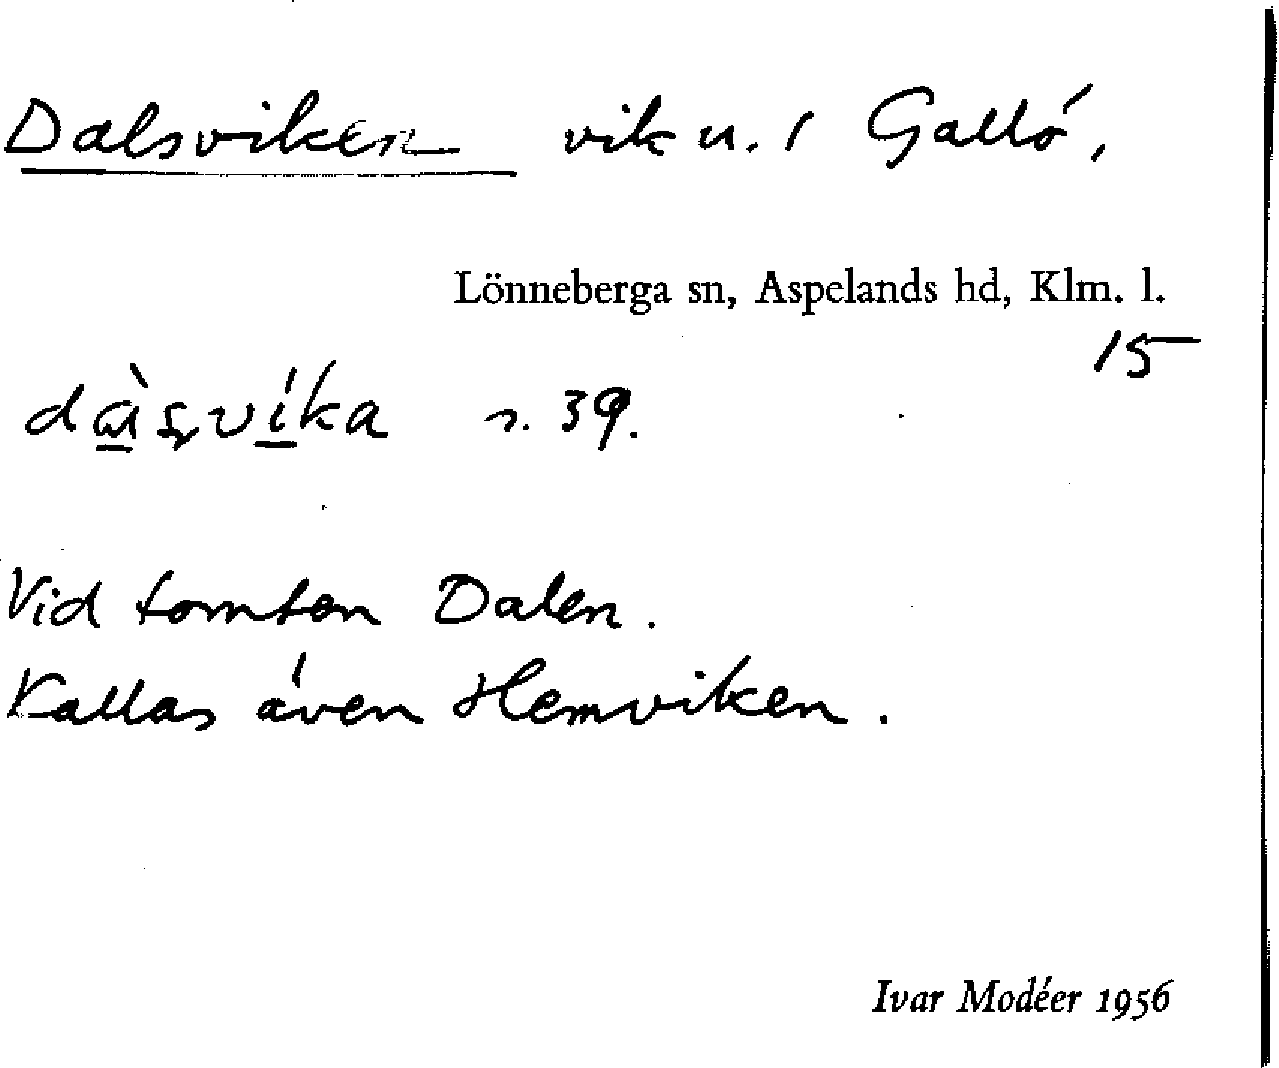 Dalsviken vik u. 1 Gallö,
Lönneberga sn, Aspelands hd, Klm. l.
15
s. 39.
Vid tomten Dalen.
Kallas även Hemviken.
Ivar Modéer 1956